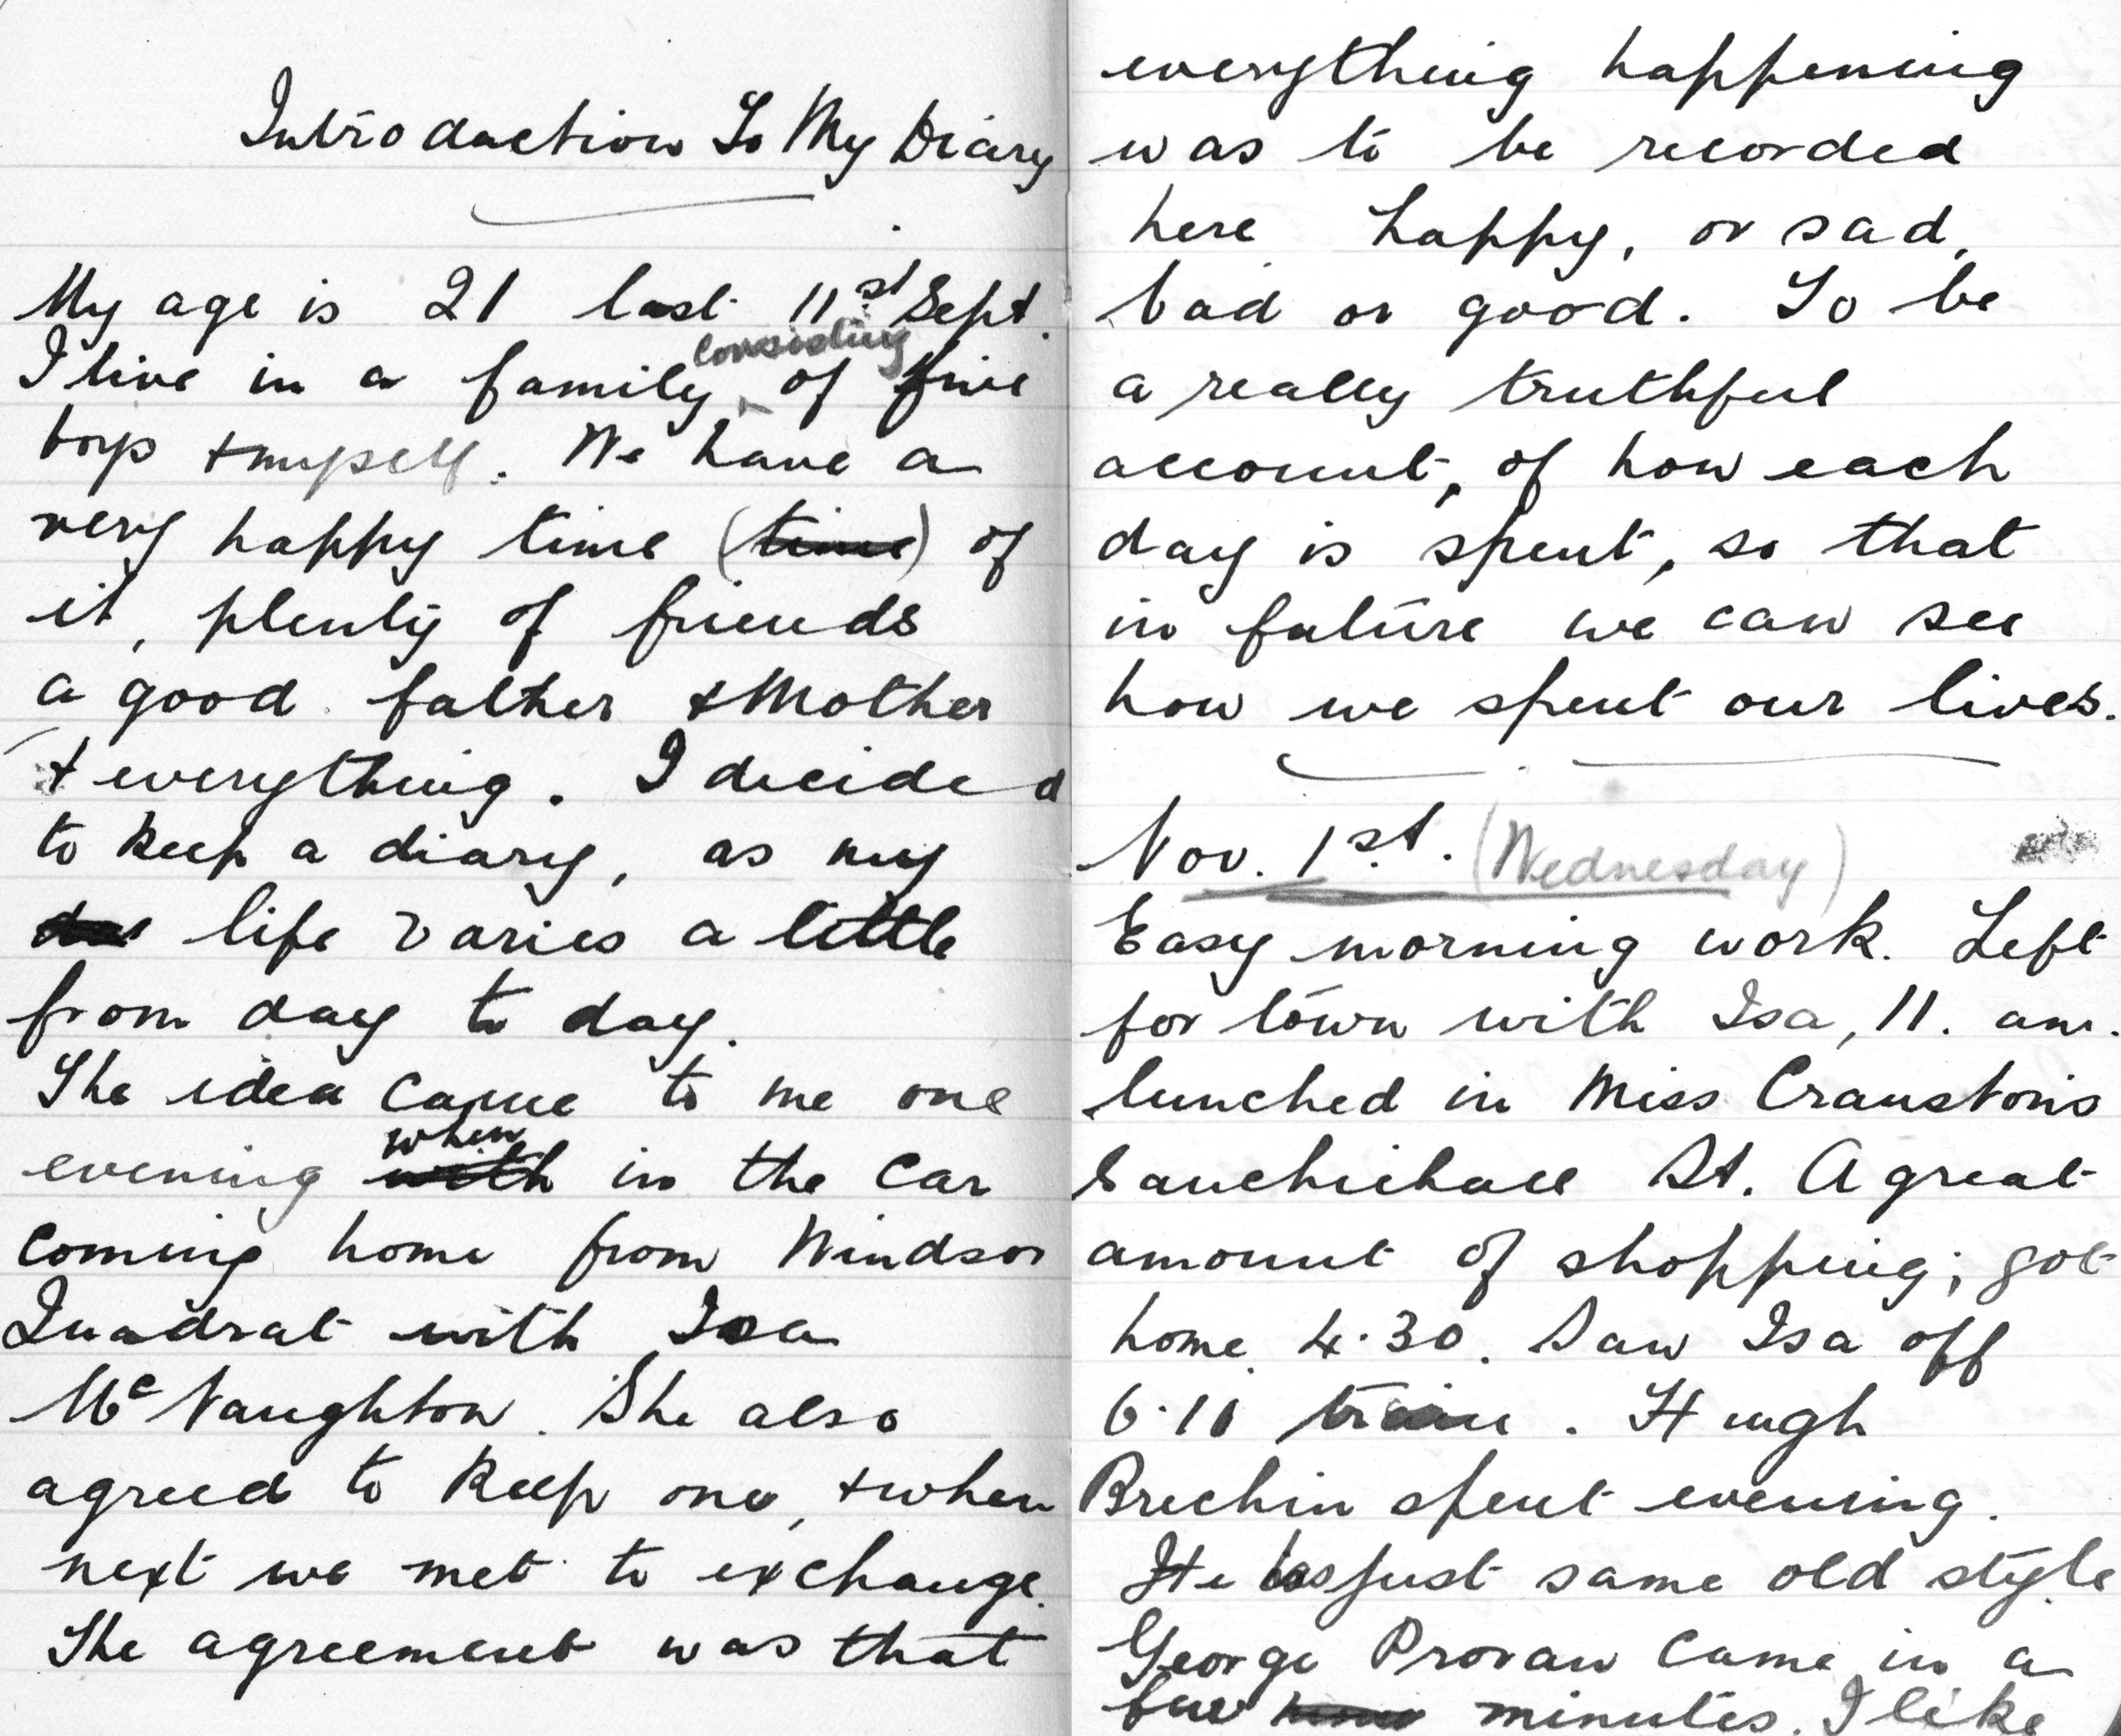 Introduction To My Diary
My age is 21 last 11st Sept.
consisting
I live in a family of five
boys + myself. We have a
very happy time (time) of
it, plenty of friends
a good father + Mother
+ everything. I decided
to keep a diary, as my
life varies a little
from day to day.
The idea came to me one
when
evening with in the car
coming home from Windsor
Quadrat with Isa
McNaughton. She also
agreed to keep one, + when
next we met to exchange.
The agreement was that
everything happening
was to be recorded
here happy, or sad,
bad or good. To be
a really truthful
account, of how each
day is spent, so that
in future we can see
how we spent our lives.
Nov. 1st. (Wednesday)
Easy morning work. Left
for town with Isa, 11. am.
lunched in Miss Cranston's
Sauchiehall St. A great
amount of shopping; got
home 4.30. Saw Isa off
6.10 train. Hugh
Brechin spent evening.
He is just same old style
George Provan came in a
few minutes. I like